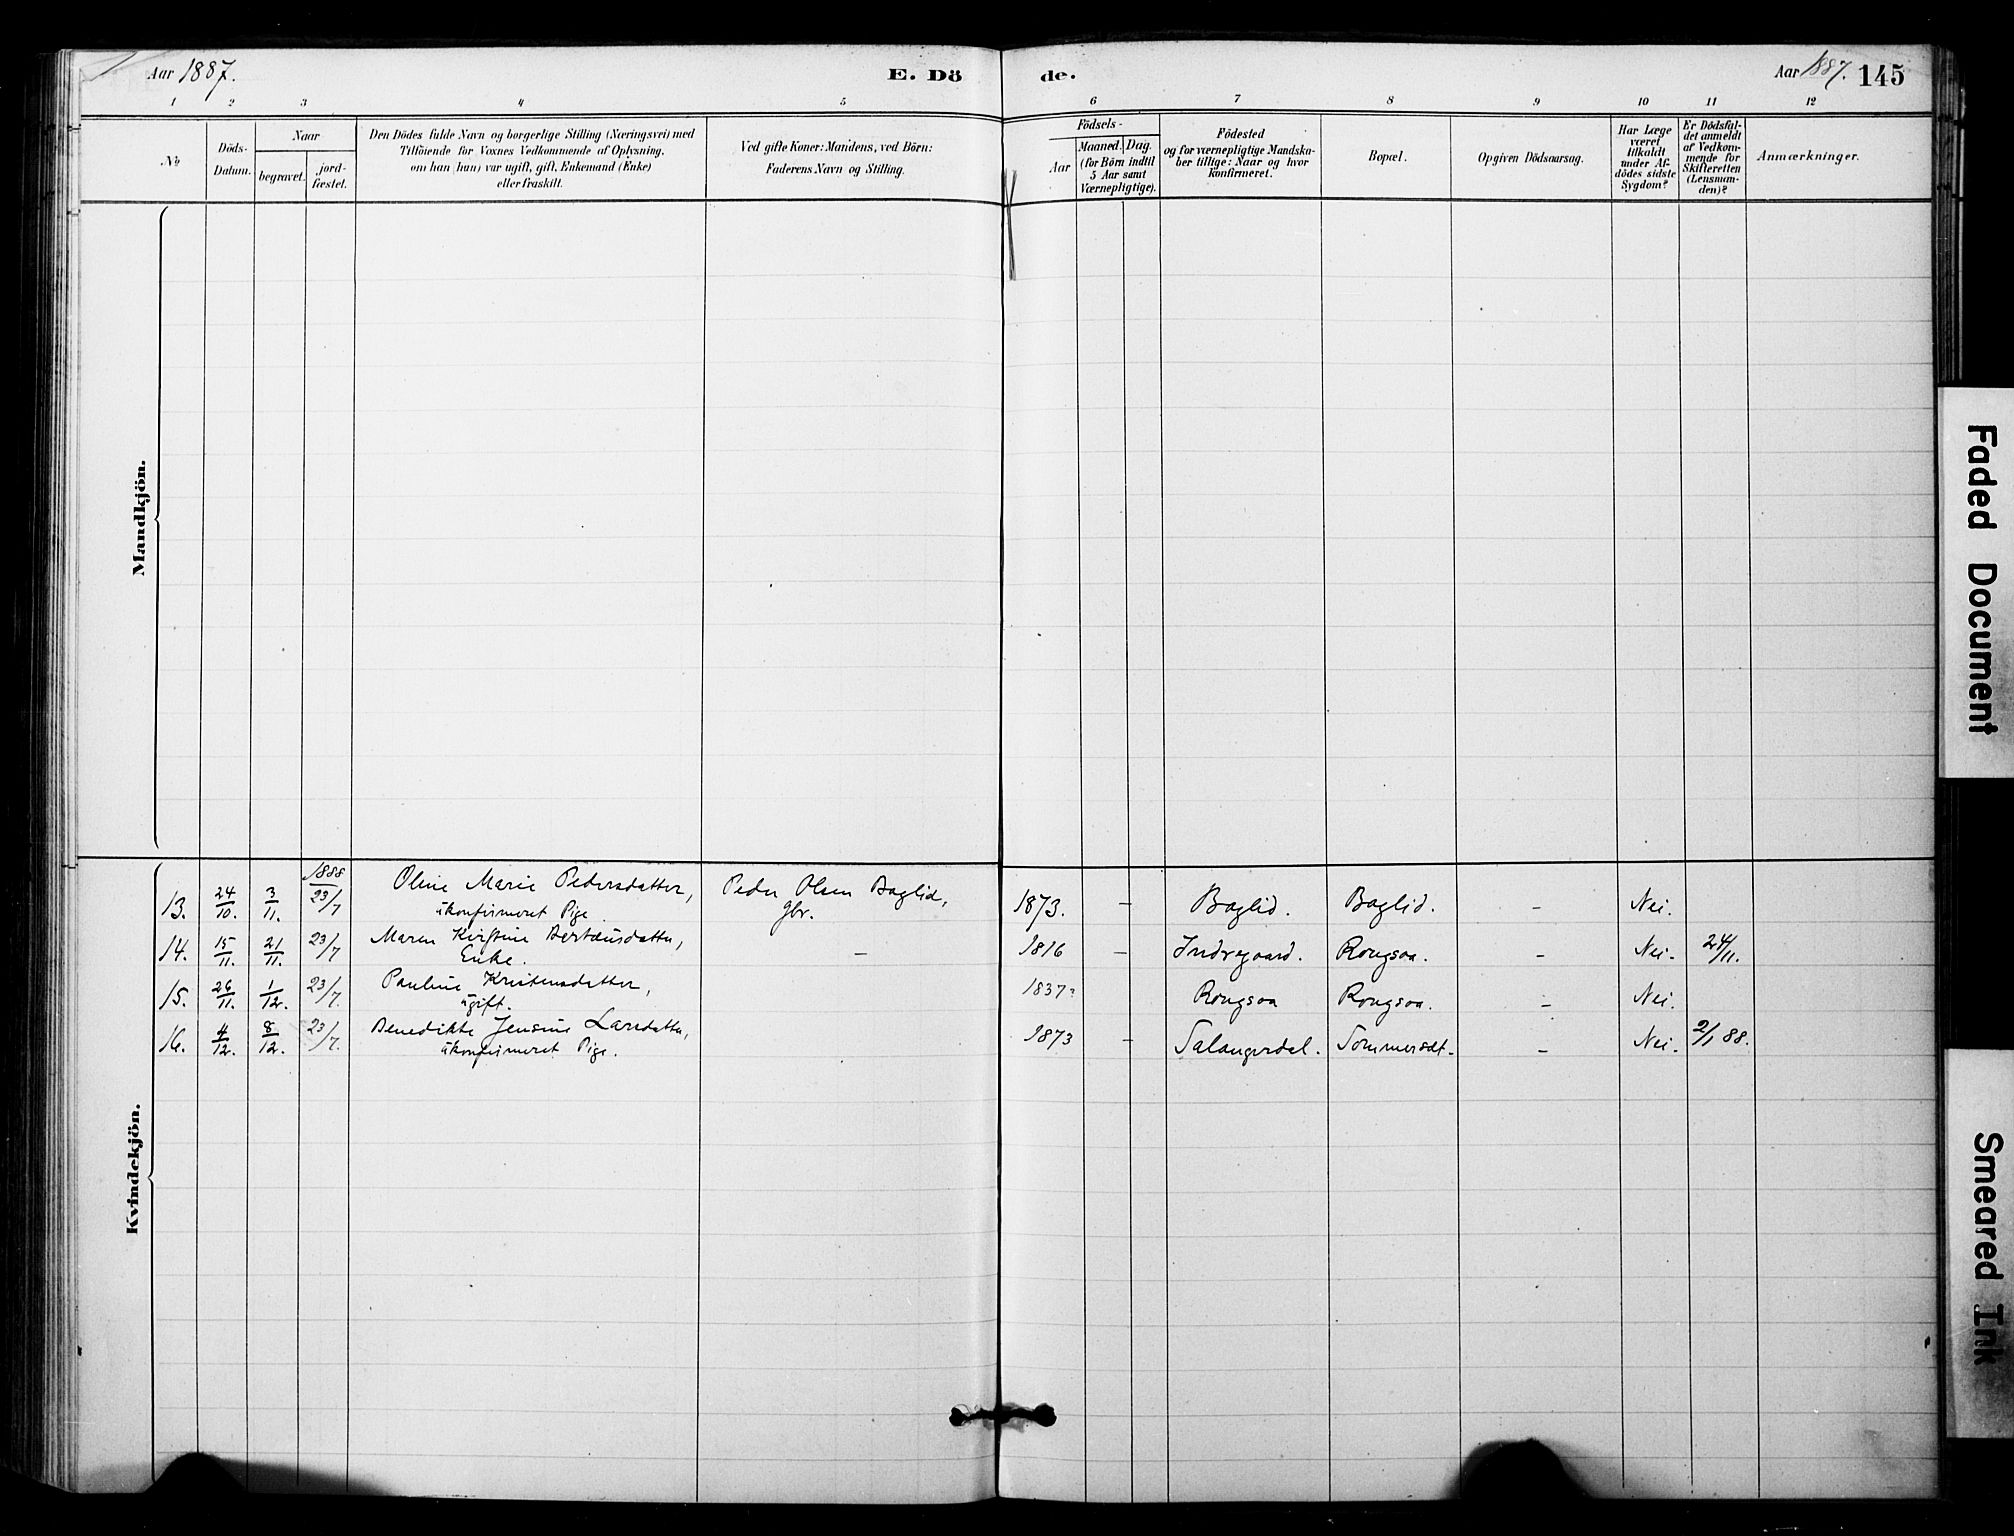 Aar 1887.
E. Dö
de.
Aar 1887.
145
1 2 3 4 5 6 7 8 9 10 11 12
No
Döds-
Datum.
Naar
begravet.
jord-
fæstet.
Den Dödes fulde Navn og borgerlige Stilling (Næringsvei) med
Tilföiende for Voxnes Vedkommende af Oplysning,
om han (hun) var ugift, gift, Enkemand (Enke)
eller fraskilt.
Ved gifte Koner: Mandens, ved Börn:
Faderens Navn og Stilling.
Födsels-
Aar
Maaned. Dag.
(for Börn indtil
5 Aar samt
Værnepligtige).
Födested
og for værnepligtige Mandska-
ber tillige: Naar og hvor
Konfirmeret.
Bopæl.
Opgiven Dödsaarsag.
Har Læge
været
tilkaldt
under Af-
dödes sidste
Sygdom?
Er Dödsfal-
det anmeldt
af Vedkom-
mende for
Skifteretten
(Lensman-
den)?
Anmærkninger.
Mandkjön.
Kvindekjön.
1888
13. 24/10. 3/11. 23/7 Oline Marie Pedersdatter, Peder Olsen Baglid, 1873. – Baglid. Baglid. – Nei.
ukonfirmeret Pige. Gbr.
14. 15/11. 21/11. 23/7 Maren Kirstine Bertheusdatter, – 1816 – Indregaard. Rongsaa. – Nei. 24/11.
Enke.
15. 26/11. 1/12. 23/7. Pauline Kristensdatter, 1837? Rongsaa Rongsaa. – Nei.
ugift.
16. 4/12. 8/12. 23/7. Benedikte Jensine Larsdatter, 1873 – Salangsdal. Sommersæt. – Nei. 2/1 88.
ukonfirmeret Pige.
Faded Document
Smeared Ink